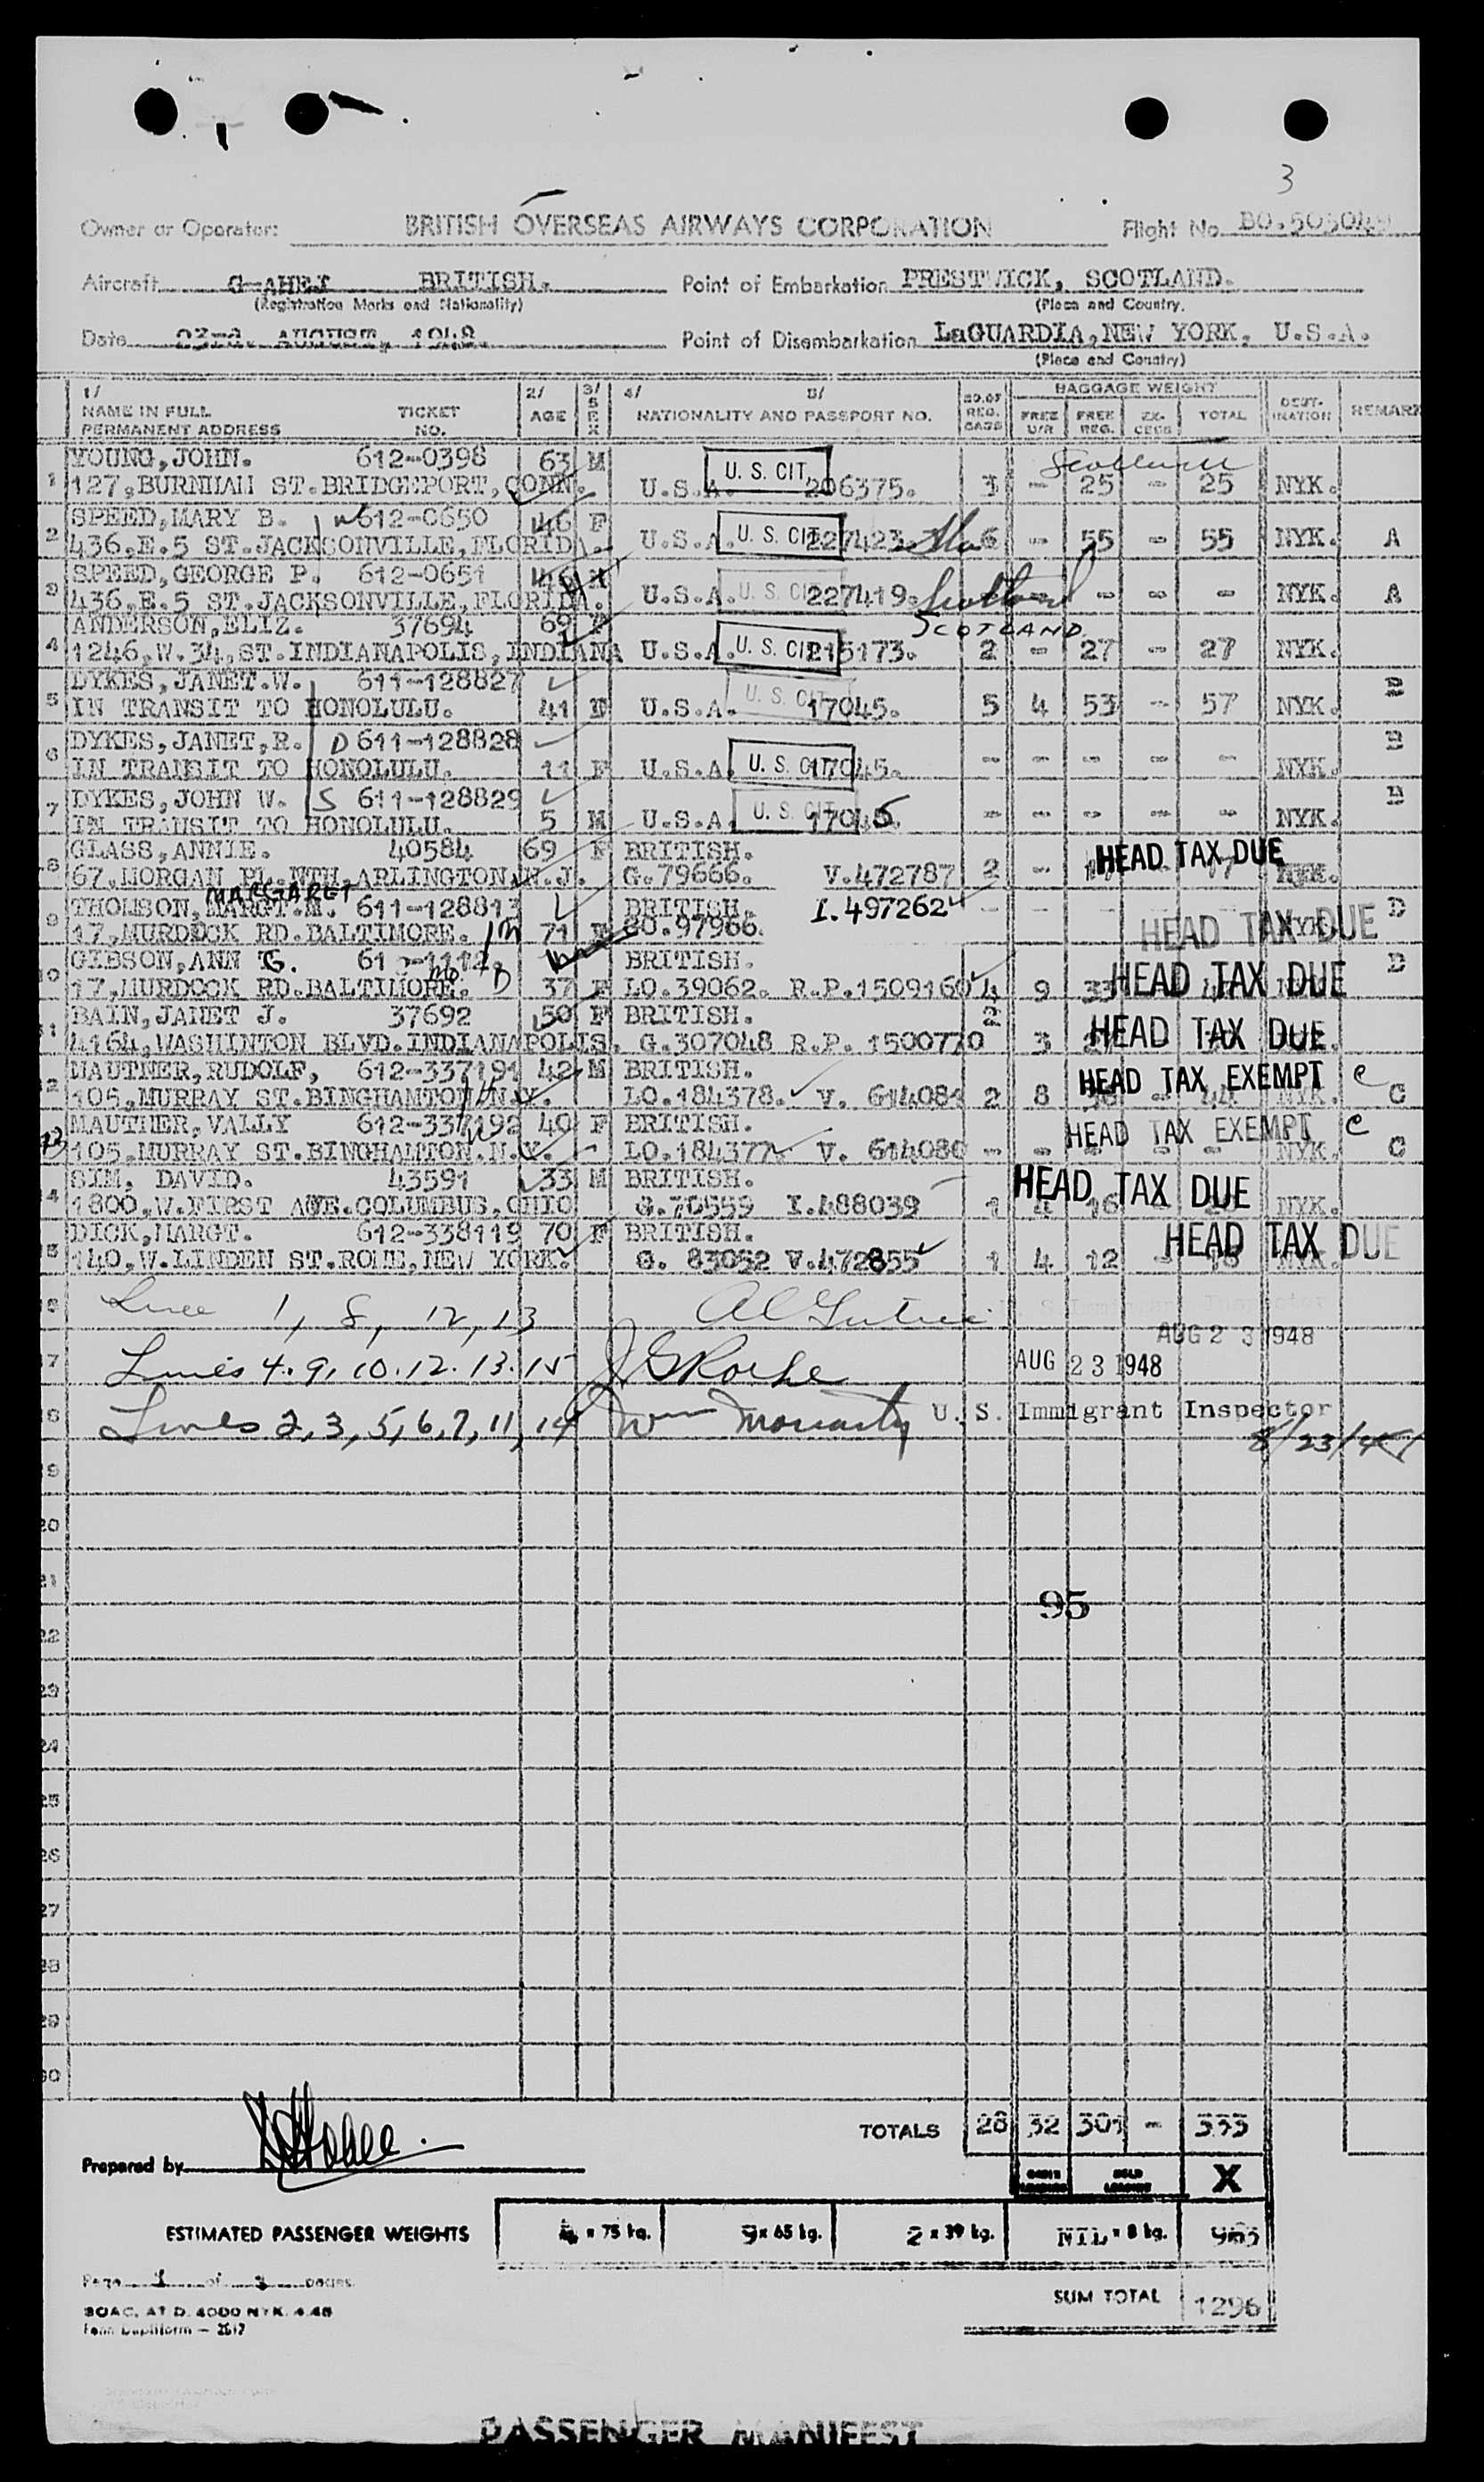 3
Owner or Operator: BRITISH OVERSEAS AIRWAYS CORPORATION Flight No. BO.505049
Aircraft G-AHEJ BRITISH. Point of Embarkation PRESTWICK, SCOTLAND.
(Registration Marks and Nationality) (Place and Country.
Date 23rd. AUGUST, 1948. Point of Disembarkation LaGUARDIA, NEW YORK. U.S.A.
(Place and Country)
1/ 2/ 3/ 4/ 5/ NO.OF BAGGAGE WEIGHT DEST-
NAME IN FULL TICKET AGE SEX NATIONALITY AND PASSPORT NO. REG. FREE FREE EX- TOTAL INATION REMARK
PERMANENT ADDRESS NO. BAGS U/R REG. CESS
YOUNG, JOHN. 612-0398 63 M U. S. CIT. Scotland
1 127, BURNHAM ST. BRIDGEPORT, CONN. U.S.A. 206375. 3 - 25 - 25 NYK.
SPEED, MARY B. W 612-0650 46 F
2 436.E.5 ST. JACKSONVILLE, FLORIDA. U.S.A. U. S. CIT 227423. 6 - 55 - 55 NYK. A
SPEED, GEORGE P. 612-0651
3 436.E.5 ST. JACKSONVILLE, FLORIDA. U.S.A. U. S. CIT 227419. Scotland - - - NYK. A
ANDERSON, ELIZ. 37694 69 F SCOTLAND
4 1246.W.34.ST. INDIANAPOLIS, INDIANA U.S.A. U. S. CIT 215173. 2 - 27 - 27 NYK.
DYKES, JANET.W. 611-128827
5 IN TRANSIT TO HONOLULU. 41 F U.S.A. U. S. CIT 17045. 5 4 53 - 57 NYK. B
DYKES, JANET, R. D 611-128828
6 IN TRANSIT TO HONOLULU. 11 F U.S.A. U. S. CIT 17045. - - - - - NYK. B
DYKES, JOHN W. S 611-128829
7 IN TRANSIT TO HONOLULU. 5 M U.S.A. U. S. CIT 17045. - - - - - NYK. B
GLASS, ANNIE. 40584 69 F BRITISH. HEAD TAX DUE
8 67, MORGAN PL. NTH. ARLINGTON. N.J. G.79666. V.472787 2 - NYK.
MARGARET
THOMSON, MARGT.M. 611-128813 BRITISH. I.497262 - - - - D
9 17, MURDOCK RD. BALTIMORE. M 71 F 97966. HEAD TAX DUE NYK.
GIBSON, ANN G. BRITISH. D
10 17, MURDOCK RD. BALTIMORE. MD. D 37 F LO.39062. R.P.1509160 4 9 HEAD TAX DUE
BAIN, JANET J. 37692 50 F BRITISH.
11 4164, WASHINTON BLVD. INDIANAPOLIS. G.307048 R.P. 1500770 3 HEAD TAX DUE
MAUTHER, RUDOLF, 612-337191 42 M BRITISH. HEAD TAX EXEMPT C
12 105, MURRAY ST. BINGHAMTON. N.Y. H LO.184378. V. 614081 2 8 - 44 NYK. C
MAUTHER, VALLY 612-337192 40 F BRITISH. HEAD TAX EXEMPT C
13 105, MURRAY ST. BINGHAMTON. N.Y. W LO.184377. V. 614080 - - - - - NYK. C
SIM, DAVID. 43591 33 M BRITISH. HEAD TAX DUE
14 1800, W. FIRST AVE. COLUMBUS. OHIO G.70559 I.488039 1 4 16 NYK.
DICK, MARGT. 612-338119 70 F BRITISH. HEAD TAX DUE
15 140, W. LINDEN ST. ROME, NEW YORK. G. 83052 V.472855 1 4 12 - NYK.
16 Line 1, 8, 12, 13 U. S. Immigrant Inspector
AUG 2 3 1948
17 Lines 4. 9, 10. 12. 13. 15 J G Roche AUG 23 1948
18 Lines 2, 3, 5, 6, 7, 11, 14 Wm Moriarty U. S. Immigrant Inspector
8/23/48
19
20
21
95
22
23
24
25
26
27
28
29
30
TOTALS 28 32 301 - 333
Prepared by
CABIN LOADING HOLD LOADING X
ESTIMATED PASSENGER WEIGHTS 4 x 75 kg. 9 x 65 kg. 2 x 39 kg. NIL x 8 kg. 963
Page 1 of 3 pages
SUM TOTAL 1296
BOAC. AT D. 4000 NYK. 4.48
PASSENGER MANIFEST